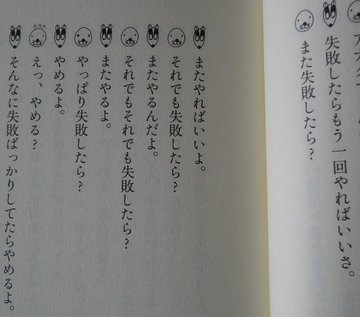 失敗したらもう一回やればいいさ。
また失敗したら?
またやればいいよ。
それでも失敗したら?
またやるんだよ。
それでもそれでも失敗したら?
またやるよ。
やっぱり失敗したら?
やめるよ。
えっ、やめる?
そんなに失敗ばっかりしてたらやめるよ。